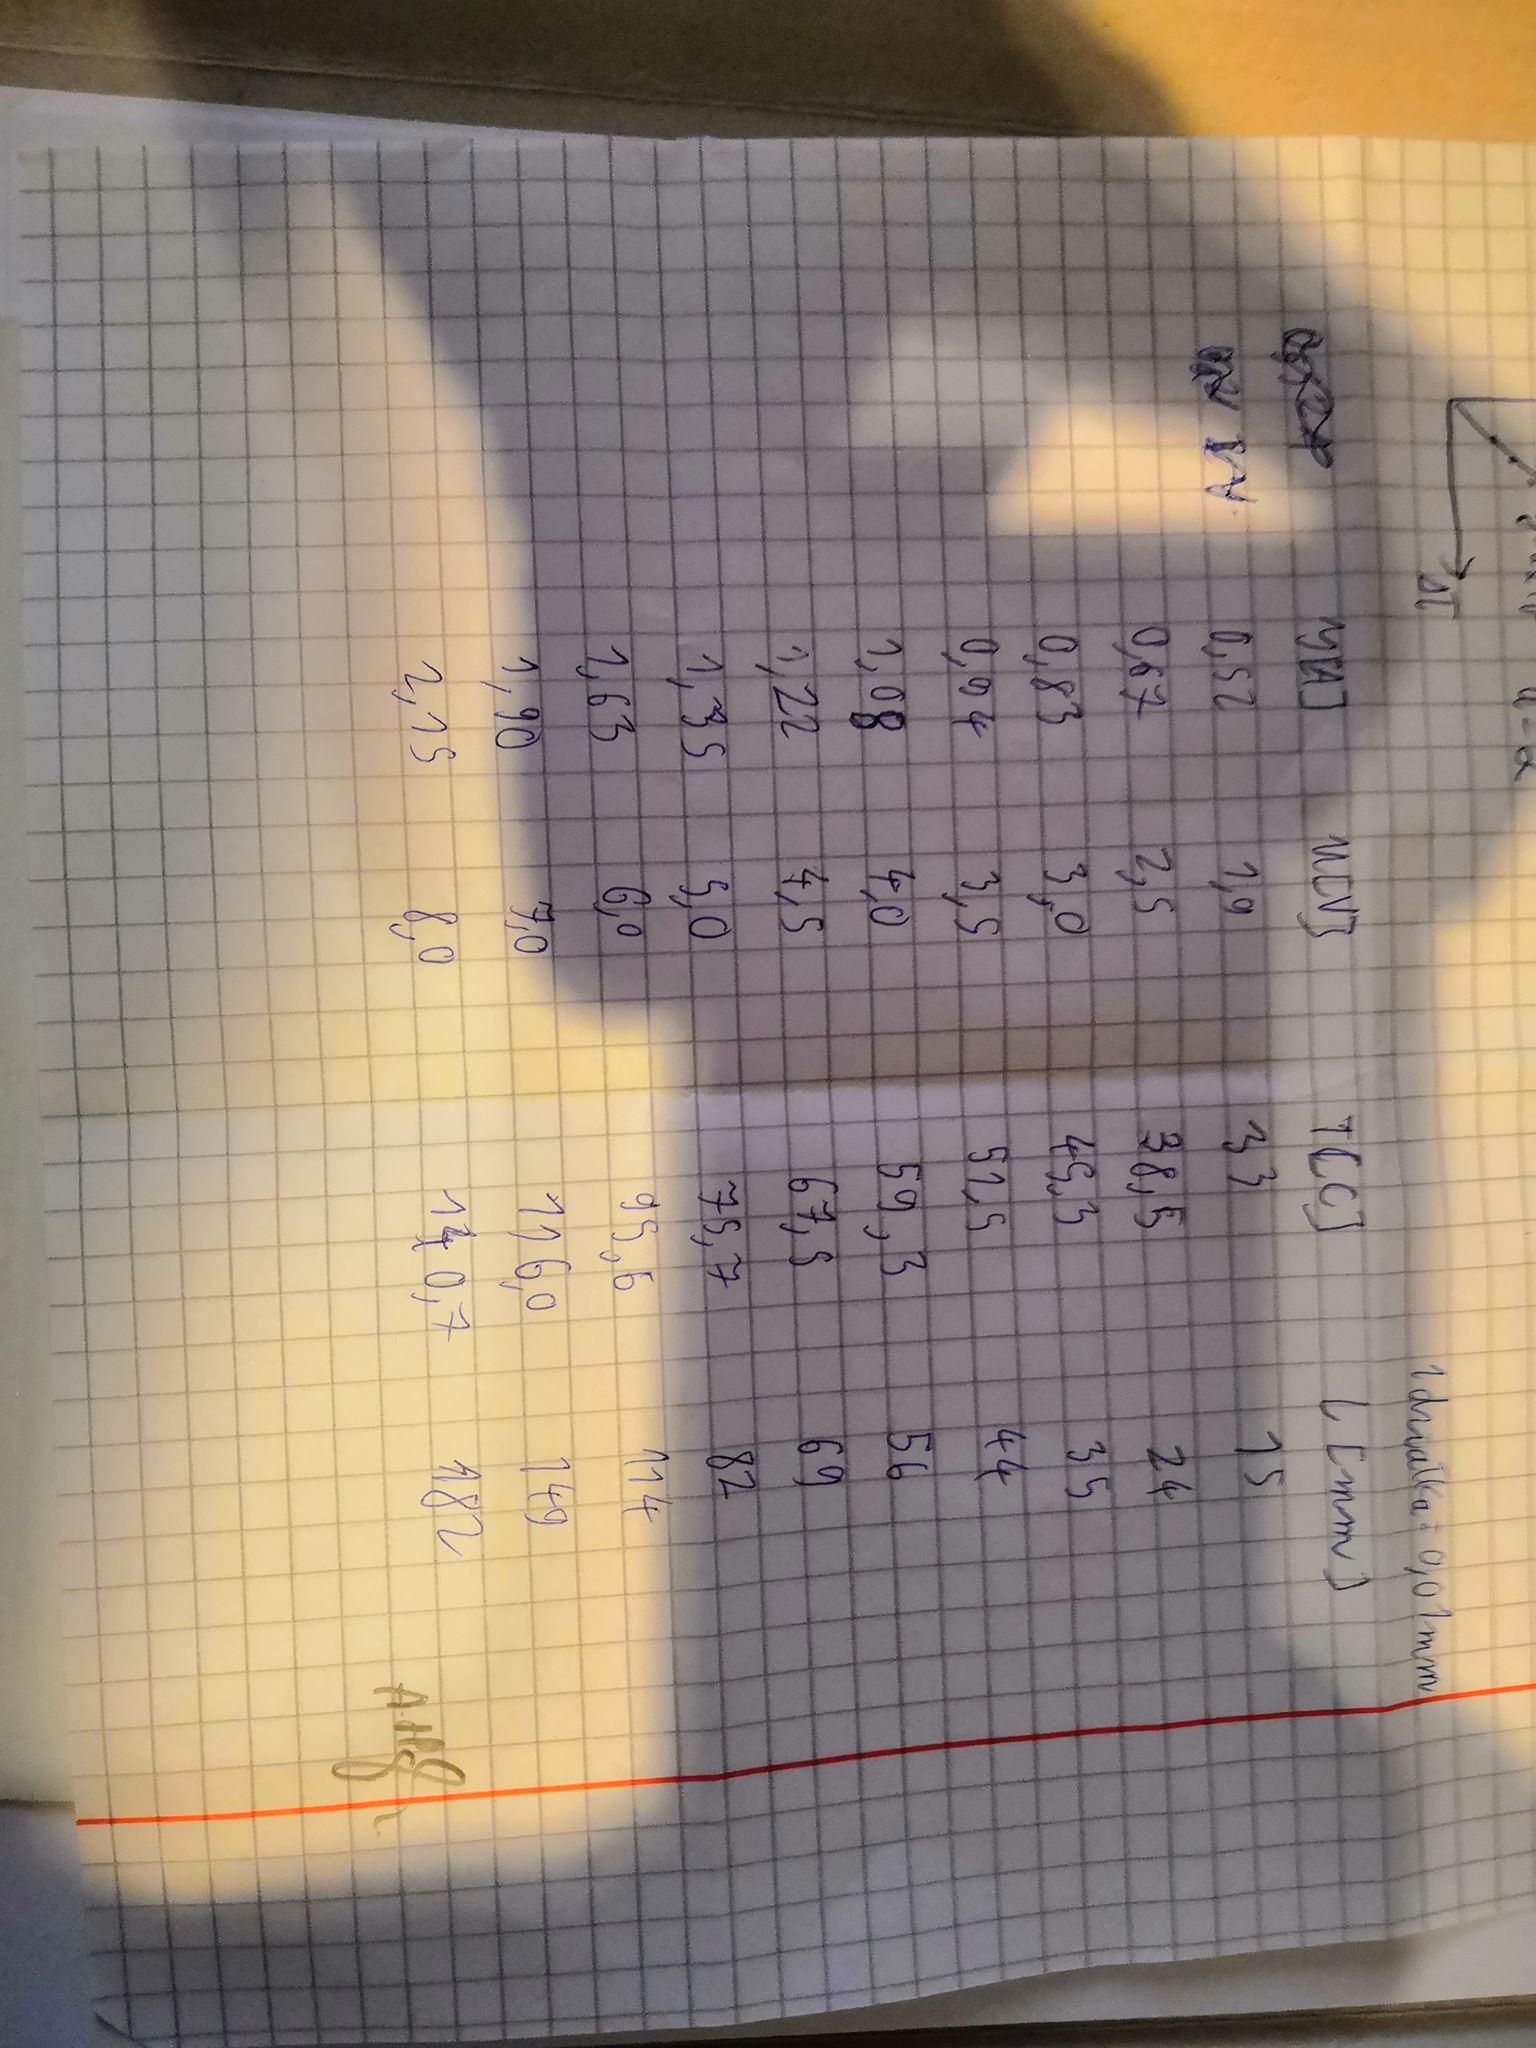 ΔT
1 działka = 0,01mm
I[A] U[V] T[C] L[mm]
0,52 1,9 33 15
0,67 2,5 38,5 24
0,83 3,0 45,3 35
0,94 3,5 51,5 44
1,08 4,0 59,3 56
1,22 4,5 67,5 69
1,35 5,0 75,7 82
1,63 6,0 95,6 114
1,90 7,0 116,0 149
2,15 8,0 140,7 182